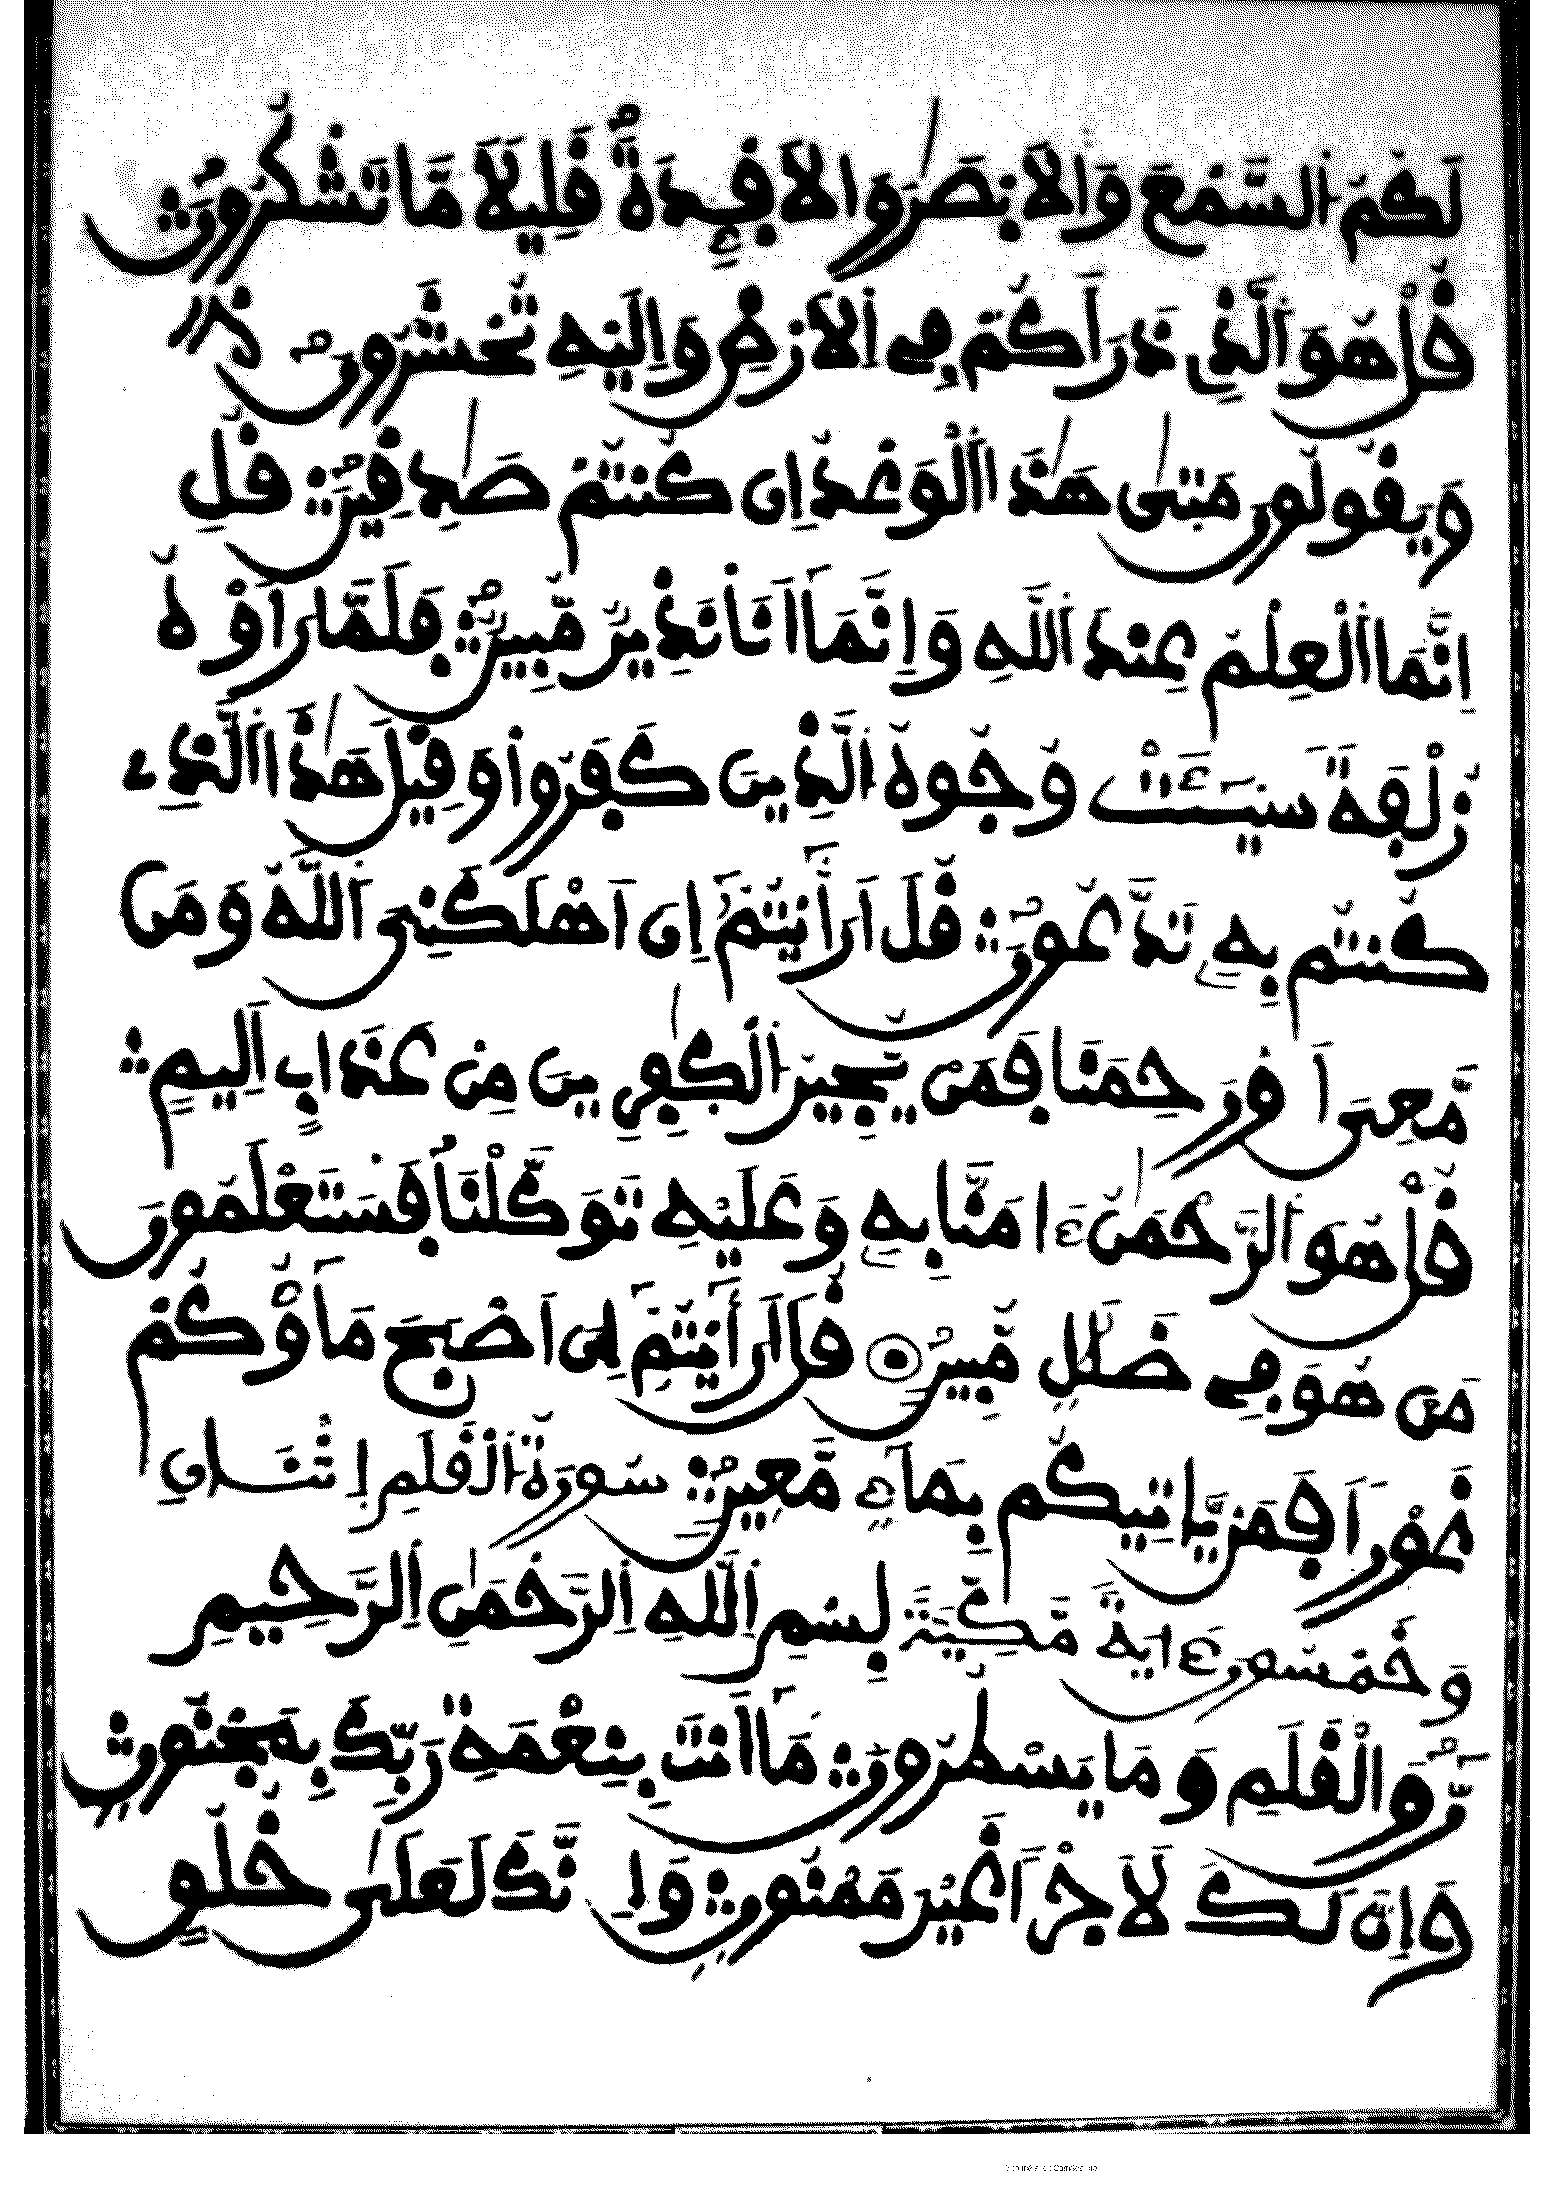 لَكُمُ السَّمْعَ وَالْأَبْصَٰرَ وَالْأَفْـِٕدَةَ قَلِيلًا مَّا تَشْكُرُونَ
قُلْ هُوَ الَّذِي ذَرَأَكُمْ فِي الْأَرْضِ وَإِلَيْهِ تُحْشَرُونَ
وَيَقُولُونَ مَتَىٰ هَٰذَا الْوَعْدُ إِن كُنتُمْ صَٰدِقِينَ قُلْ
إِنَّمَا الْعِلْمُ عِندَ اللَّهِ وَإِنَّمَا أَنَا نَذِيرٌ مُّبِينٌ فَلَمَّا رَأَوْهُ
زُلْفَةً سِيـَٔتْ وُجُوهُ الَّذِينَ كَفَرُوا وَقِيلَ هَٰذَا الَّذِي
كُنتُم بِهِ تَدَّعُونَ قُلْ أَرَأَيْتُمْ إِنْ أَهْلَكَنِيَ اللَّهُ وَمَن
مَّعِيَ أَوْ رَحِمَنَا فَمَن يُجِيرُ الْكَٰفِرِينَ مِنْ عَذَابٍ أَلِيمٍ
قُلْ هُوَ الرَّحْمَٰنُ ءَامَنَّا بِهِ وَعَلَيْهِ تَوَكَّلْنَا فَسَتَعْلَمُونَ
مَنْ هُوَ فِي ضَلَٰلٍ مُّبِينٍ قُلْ أَرَأَيْتُمْ إِنْ أَصْبَحَ مَاؤُكُمْ
غَوْرًا فَمَن يَأْتِيكُم بِمَاءٍ مَّعِينٍ سُورَةُ الْقَلَمِ إِثْنَانِ
وَخَمْسُونَ ءَايَةً مَّكِّيَّةٌ بِسْمِ اللَّهِ الرَّحْمَٰنِ الرَّحِيمِ
نٓ وَالْقَلَمِ وَمَا يَسْطُرُونَ مَا أَنتَ بِنِعْمَةِ رَبِّكَ بِمَجْنُونٍ
وَإِنَّ لَكَ لَأَجْرًا غَيْرَ مَمْنُونٍ وَإِنَّكَ لَعَلَىٰ خُلُقٍ